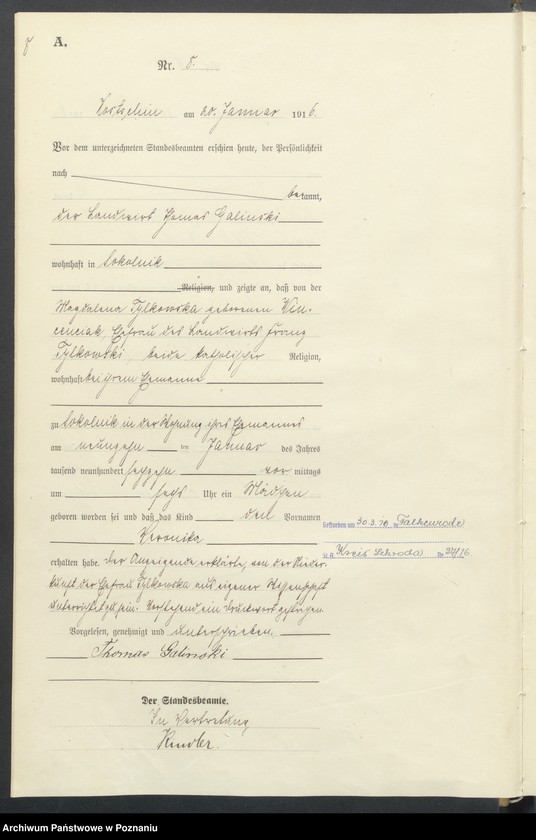 8
A.
Nr. 8.
Kostschin am 20. Januar 1916.
Vor dem unterzeichneten Standesbeamten erschien heute, der Persönlichkeit
nach
bekannt,
der Landwirt Thomas Galinski
wohnhaft in Sokolnik
Religion, und zeigte an, daß von der
Magdalena Tylkowska geborenen Win-
cenciak, Ehefrau des Landwirts Franz
Tylkowski, beide katholischer Religion,
wohnhaft bei ihrem Ehemanne
zu Sokolnik in der Wohnung ihres Ehemannes
am neunzehn ten Januar des Jahres
tausend neunhundert sechzehn vor mittags
um sechs Uhr ein Mädchen
geboren worden sei und daß das Kind den Vornamen
Veronika
erhalten habe. Der Anzeigende erklärte, von der Nieder-
kunft der Ehefrau Tylkowska aus eigener Wissenschaft
unterrichtet zu sein. Vorstehend ein Druckwort gestrichen.
Vorgelesen, genehmigt und unterschrieben.
Thomas Galinski
Der Standesbeamte.
In Vertretung
Gestorben am 30.3.16 in Falkenrode
Kreis Schroda Nr.
Archiwum Państwowe w Poznaniu